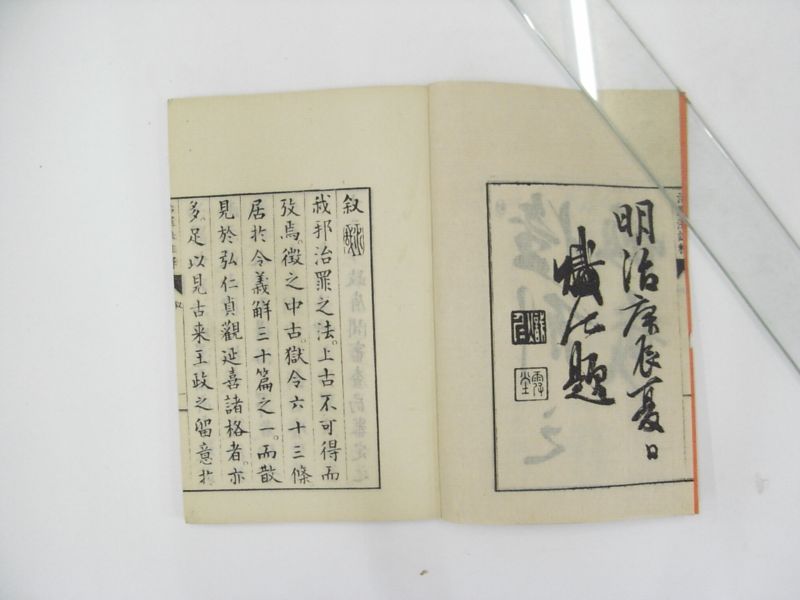 明治庚辰夏日
題
叙
我邦治罪之法。上古不可得而
攷焉。徴之中古。獄令六十三條
居於令義解三十篇之一。而散
見於弘仁貞觀延喜諸格者。亦
多。足以見古来王政之留意於